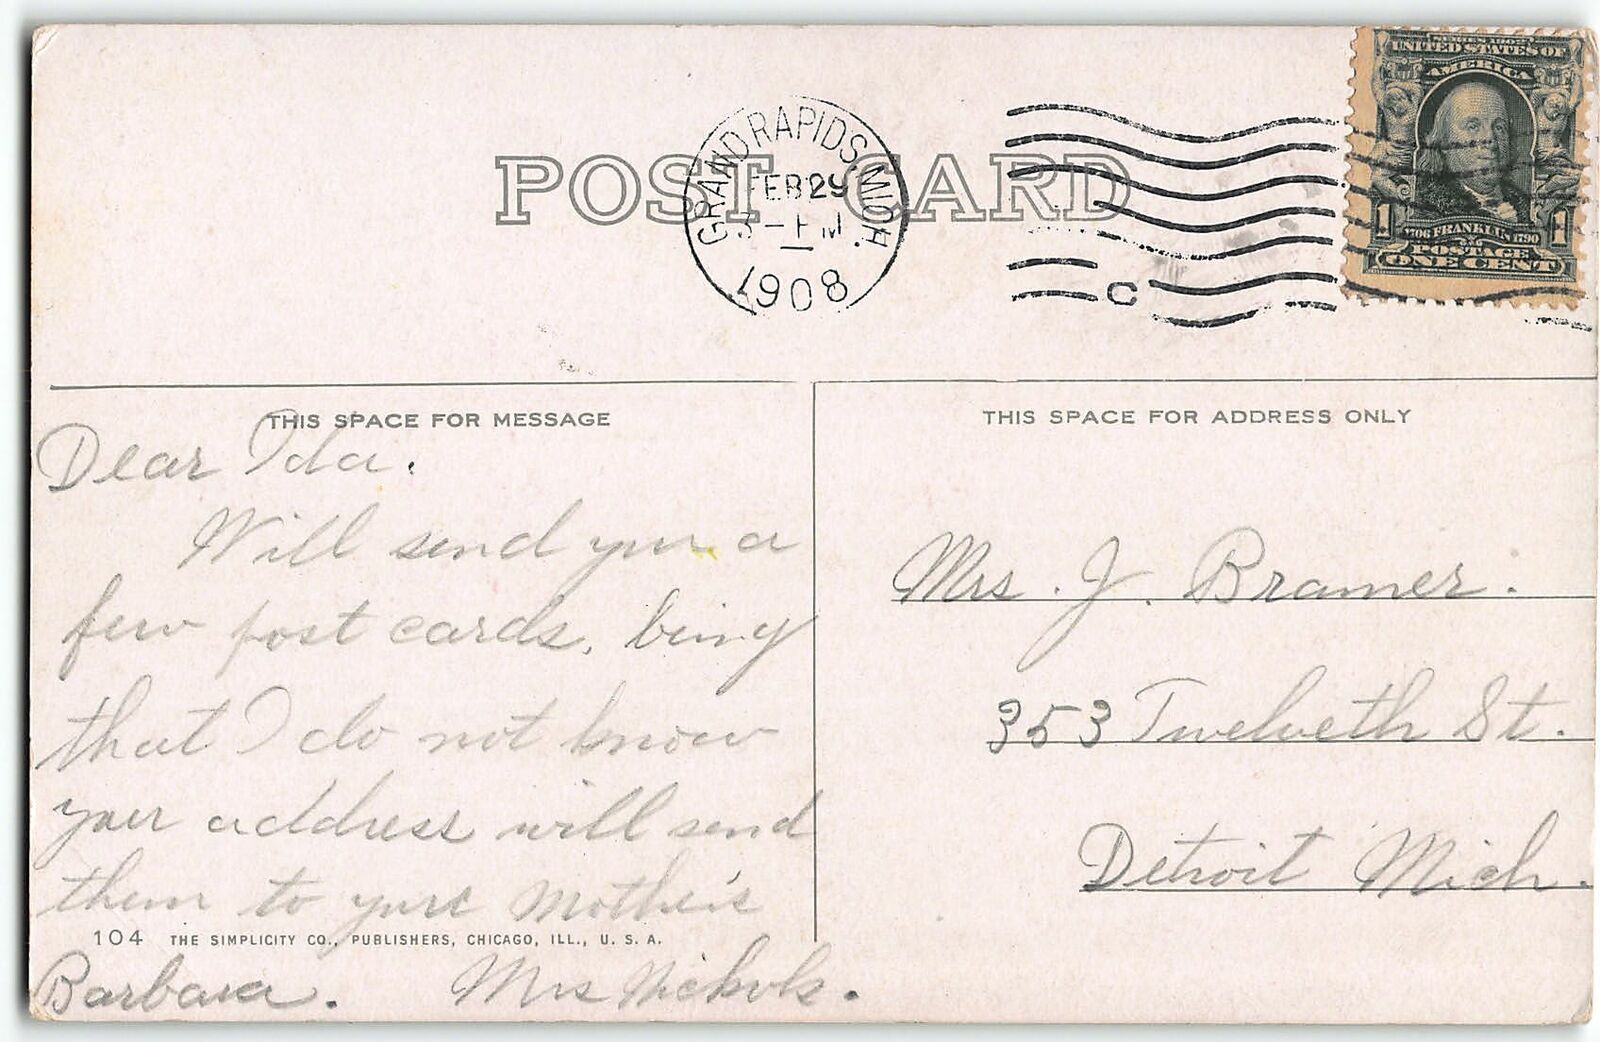 POST CARD
GRAND RAPIDS. MICH.
FEB 29
3 - PM
1908
C
SERIES 1902
UNITED STATES OF
AMERICA
1 1
1706 FRANKLIN 1790
POSTAGE
ONE CENT
THIS SPACE FOR MESSAGE
Dear Ida.
Will send you a
few post cards, being
that I do not know
your address will send
them to your Mother's
104 THE SIMPLICITY CO., PUBLISHERS, CHICAGO, ILL., U. S. A.
Barbara. Mrs Nickols.
THIS SPACE FOR ADDRESS ONLY
Mrs. J. Bramer.
353 Twelveth St.
Detroit Mich.